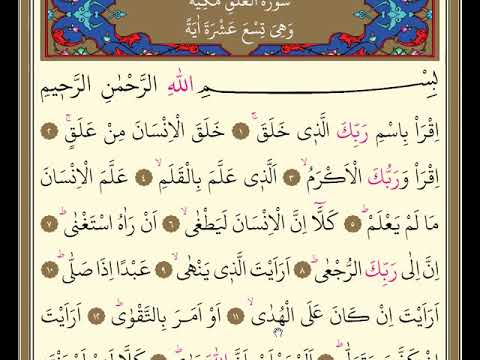 سُورَةُ الْعَلَقِ مَكِّيَّةٌ
وَهِيَ تِسْعَ عَشْرَةَ اٰيَةً
بِسْــــمِ اللّٰهِ الرَّحْمٰنِ الرَّحٖيمِ
اِقْرَاْ بِاسْمِ رَبِّكَ الَّذٖى خَلَقَۚ ﴿١﴾ خَلَقَ الْاِنْسَانَ مِنْ عَلَقٍۚ ﴿٢﴾
اِقْرَاْ وَرَبُّكَ الْاَكْرَمُۙ ﴿٣﴾ اَلَّذٖى عَلَّمَ بِالْقَلَمِۙ ﴿٤﴾ عَلَّمَ الْاِنْسَانَ
مَا لَمْ يَعْلَمْؕ ﴿٥﴾ كَلَّٓا اِنَّ الْاِنْسَانَ لَيَطْغٰىۙ ﴿٦﴾ اَنْ رَاٰهُ اسْتَغْنٰىؕ ﴿٧﴾
اِنَّ اِلٰى رَبِّكَ الرُّجْعٰىؕ ﴿٨﴾ اَرَاَيْتَ الَّذٖى يَنْهٰىۙ ﴿٩﴾ عَبْدًا اِذَا صَلّٰىؕ ﴿١٠﴾
اَرَاَيْتَ اِنْ كَانَ عَلَى الْهُدٰىۙ ﴿١١﴾ اَوْ اَمَرَ بِالتَّقْوٰىؕ ﴿١٢﴾ اَرَاَيْتَ